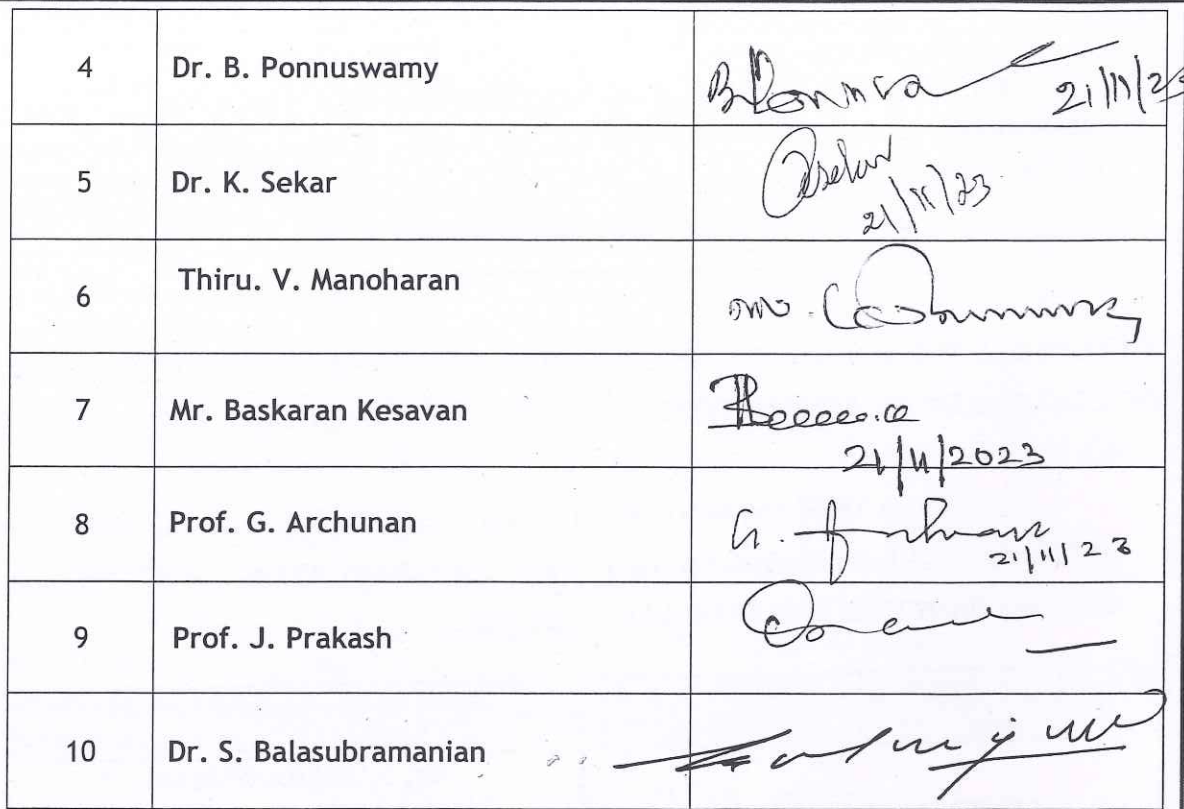 4 Dr. B. Ponnuswamy 21/11/23
5 Dr. K. Sekar
21/11/23
6 Thiru. V. Manoharan
7 Mr. Baskaran Kesavan
21/11/2023
8 Prof. G. Archunan G.
21/11/23
9 Prof. J. Prakash
10 Dr. S. Balasubramanian